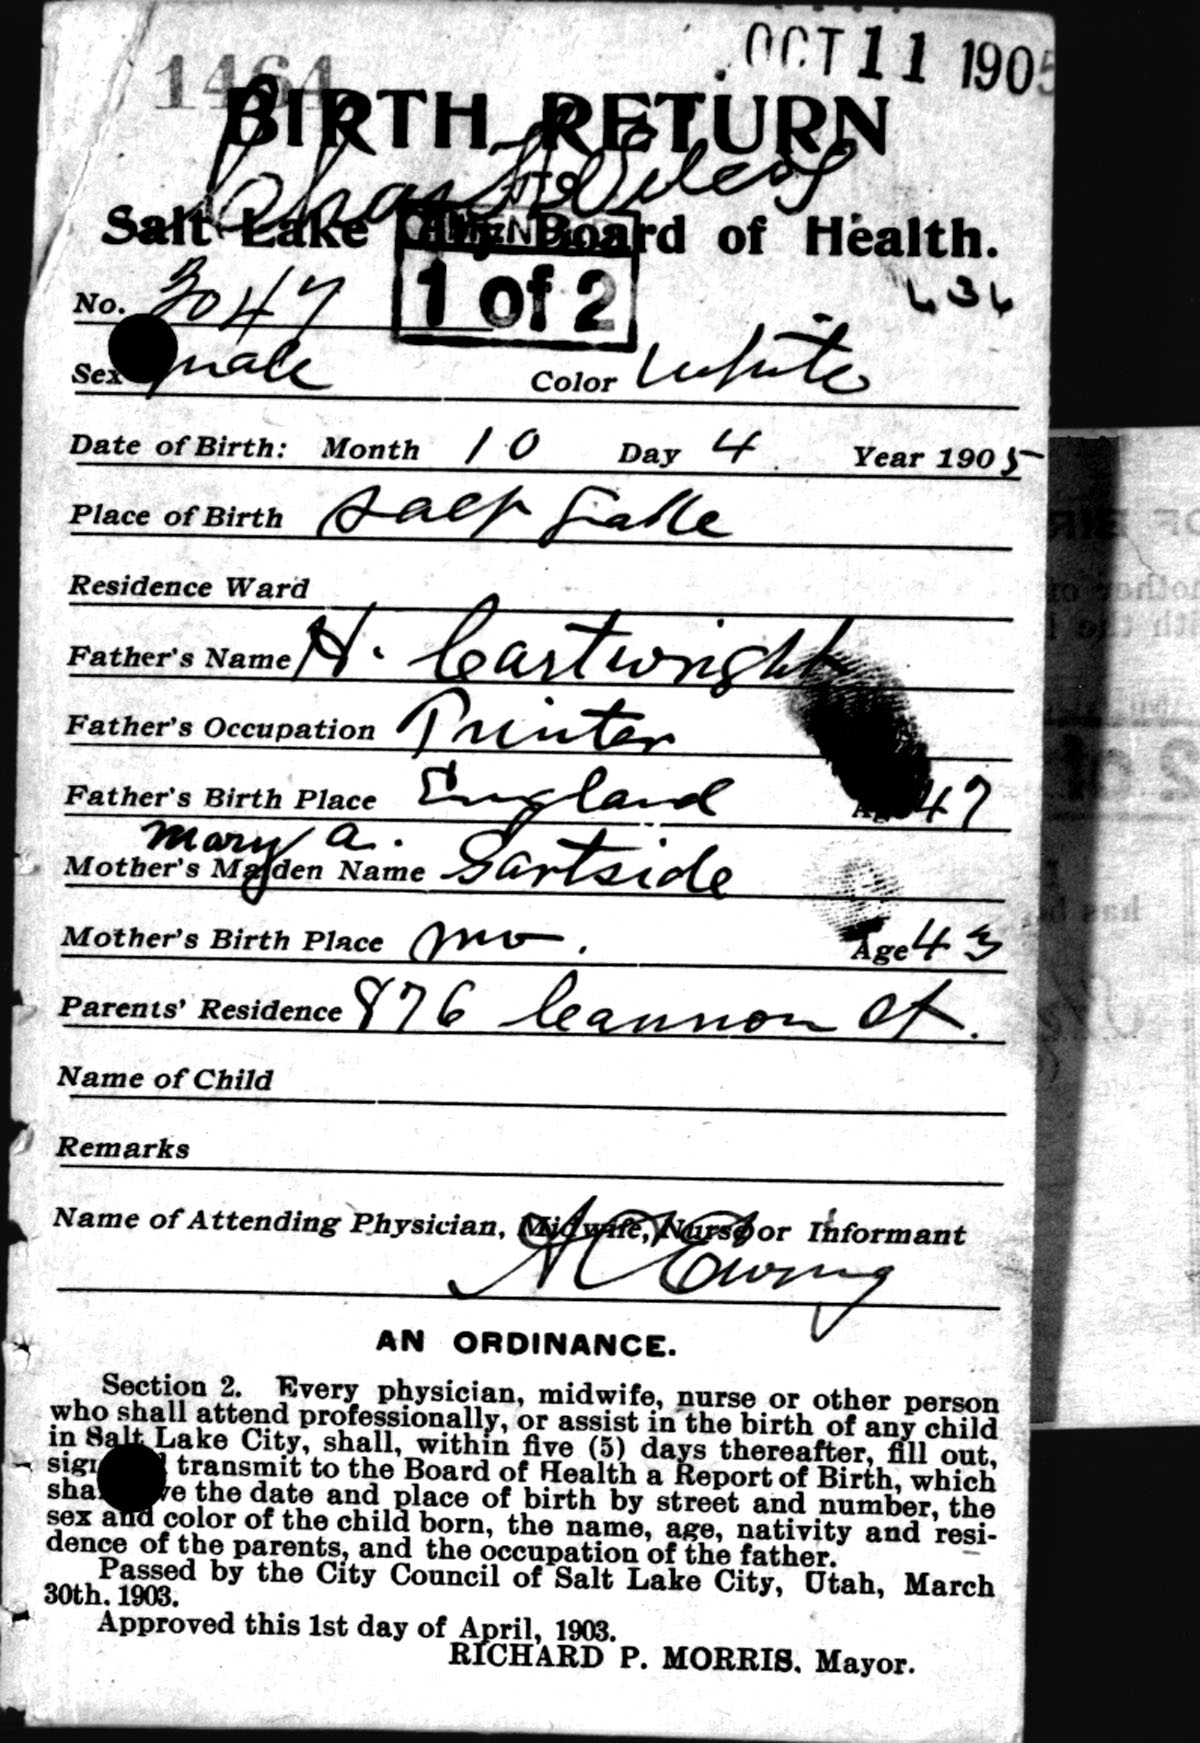 1464
OCT 11 1905
BIRTH RETURN
TO
Salt Lake City Board of Health.
1 of 2
No. 3047
636
Sex male Color White
Date of Birth: Month 10 Day 4 Year 1905
Place of Birth Salt Lake
Residence Ward
Father's Name H. Cartwright
Father's Occupation Printer
Father's Birth Place England Age 47
Mary A.
Mother's Maiden Name Gartside
Mother's Birth Place Mo. Age 43
Parents' Residence 876 Cannon St.
Name of Child
Remarks
Name of Attending Physician, Midwife, Nurse or Informant
A C Ewing
AN ORDINANCE.
Section 2. Every physician, midwife, nurse or other person
who shall attend professionally, or assist in the birth of any child
in Salt Lake City, shall, within five (5) days thereafter, fill out,
sign transmit to the Board of Health a Report of Birth, which
the date and place of birth by street and number, the
sex and color of the child born, the name, age, nativity and resi-
dence of the parents, and the occupation of the father.
Passed by the City Council of Salt Lake City, Utah, March
30th, 1903.
Approved this 1st day of April, 1903.
RICHARD P. MORRIS, Mayor.